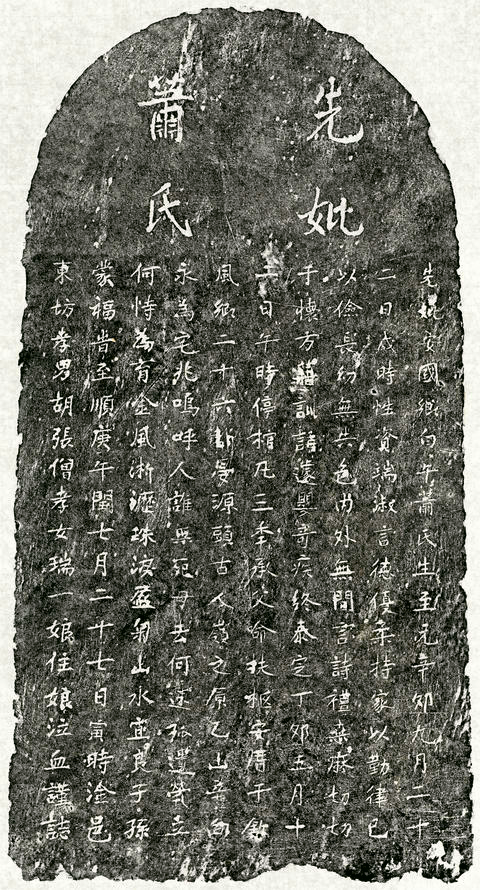 先妣
蕭氏
先妣安國鄉白千蕭氏生至元辛卯九月二十
二日戌時性資端淑言德優柔持家以勤律己
以儉長幼無共色內外無間言詩禮桑麻切切
于懷方藉訓誨遽嬰奇疾終泰定丁卯五月十
二日午時停棺凡三年承父命扶柩安厝于欽
風鄉二十六都曼源頭古人嶺之原乙山辛向
永為宅兆嗚呼人誰無死母去何速孤遑煢立
何恃為育金風淅瀝珠淚盈匊山水宜良子孫
蒙福肯至順庚午閏七月二十七日寅時淦邑
東坊孝男胡張僧孝女瑞一娘住娘泣血謹誌